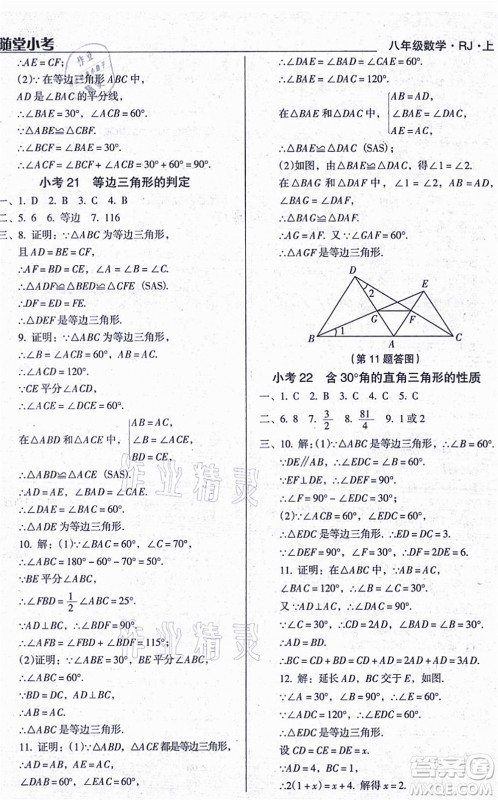 随堂小考
八年级数学·RJ·上
∴AE=CF;
(2)∵在等边三角形ABC中,
AD是∠BAC的平分线,
∴∠BAE=30°,∠ACB=60°.
∵△ABE≌△CBF.
∴∠BAE=∠BCF=30°.
∴∠ACF=∠BCF+∠ACB=30°+60°=90°.
小考21 等边三角形的判定
一、1. D 2. B 3. C 4. B
二、5. 6 6. 等边 7. 116
三、8. 证明:∵△ABC为等边三角形,
且AD=BE=CF,
∴AF=BD=CE,∠A=∠B=∠C=60°.
∴△ADF≌△BED≌△CFE (SAS).
∴DF=ED=FE.
∴△DEF是等边三角形.
9. 证明:∵△ABC为等边三角形,
∴∠B=∠ACB=60°,AB=AC.
∴∠ACD=120°.
∵CE平分∠ACD,
∴∠ACE=∠DCE=60°.
在△ABD和△ACE中,
AB=AC,
∠B=∠ACE,
BD=CE,
∴△ABD≌△ACE (SAS).
∴AD=AE,∠BAD=∠CAE.
∴∠DAE=∠BAC=60°.
∴△ADE为等边三角形.
10. 解:(1)∵∠BAC=60°,∠C=70°.
∴∠ABC=180°-60°-70°=50°.
∵BE平分∠ABC,
∴∠FBD=1/2∠ABC=25°.
∵AD⊥BC,∴∠BDF=90°.
∴∠AFB=∠FBD+∠BDF=115°;
(2)证明:∵∠ABE=30°,BE平分∠ABC,
∴∠ABC=60°.
∵BD=DC,AD⊥BC,
∴AB=AC.
∴△ABC是等边三角形.
11. 证明:(1)∵△ABD,△ACE都是等边三角形,
∴AB=AD,AE=AC,
∠DAB=60°,∠EAC=60°.
∴∠DAE=180°-60°-60°=60°.
∴∠BAE=∠DAC=120°.
在△BAE和△DAC中,
AB=AD,
∠BAE=∠DAC,
AE=AC,
∴△BAE≌△DAC (SAS).
(2)如图,由(1)知∠1=∠2,
在△BAG和△DAF中,
∠1=∠2,
AB=AD,
∠BAG=∠DAF,
∴△BAG≌△DAF.
∴AG=AF. 又∵∠GAF=60°,
∴△AGF是等边三角形.
D
2
E
G
F
B
1
A
C
(第11题答图)
小考22 含30°角的直角三角形的性质
一、1. C 2. B 3. B 4. C 5. C
二、6. 8 7. 3/2 8. 81/4 9. 1或2
三、10. 解:(1)∵△ABC是等边三角形,∴∠B=60°.
∵DE∥AB,∴∠EDC=∠B=60°.
∵EF⊥DE,∴∠DEF=90°.
∴∠F=90°-∠EDC=30°;
(2)∵∠ACB=60°,∠EDC=60°.
∴△EDC是等边三角形.∴ED=DC=3.
∵∠DEF=90°,∠F=30°,∴DF=2DE=6.
11. 证明:∵∠BAC=120°,AB=AC,
∴∠B=∠C=30°.
∵DA⊥AB,∴∠BAD=90°.
在Rt△ABD中,BD=2AD.
∵∠CAD=∠BAC-∠BAD=30°,
∴∠CAD=∠C.
∴AD=CD.
∴BC=CD+BD=CD+2AD=CD+2CD=3CD.
12. 解:延长AD,BC交于点E,如图.
∵∠A=30°,∠B=90°,
∴∠E=60°.
∵∠ADC=120°,
∴∠EDC=60°.
∴△EDC是等边三角形.
设CD=x,
∵CD=CE=DE=x,
∵AD=4,BC=1,
∴2(1+x)=x+4. 解得x=2.
作业精灵
作业精灵
MXQE.COM